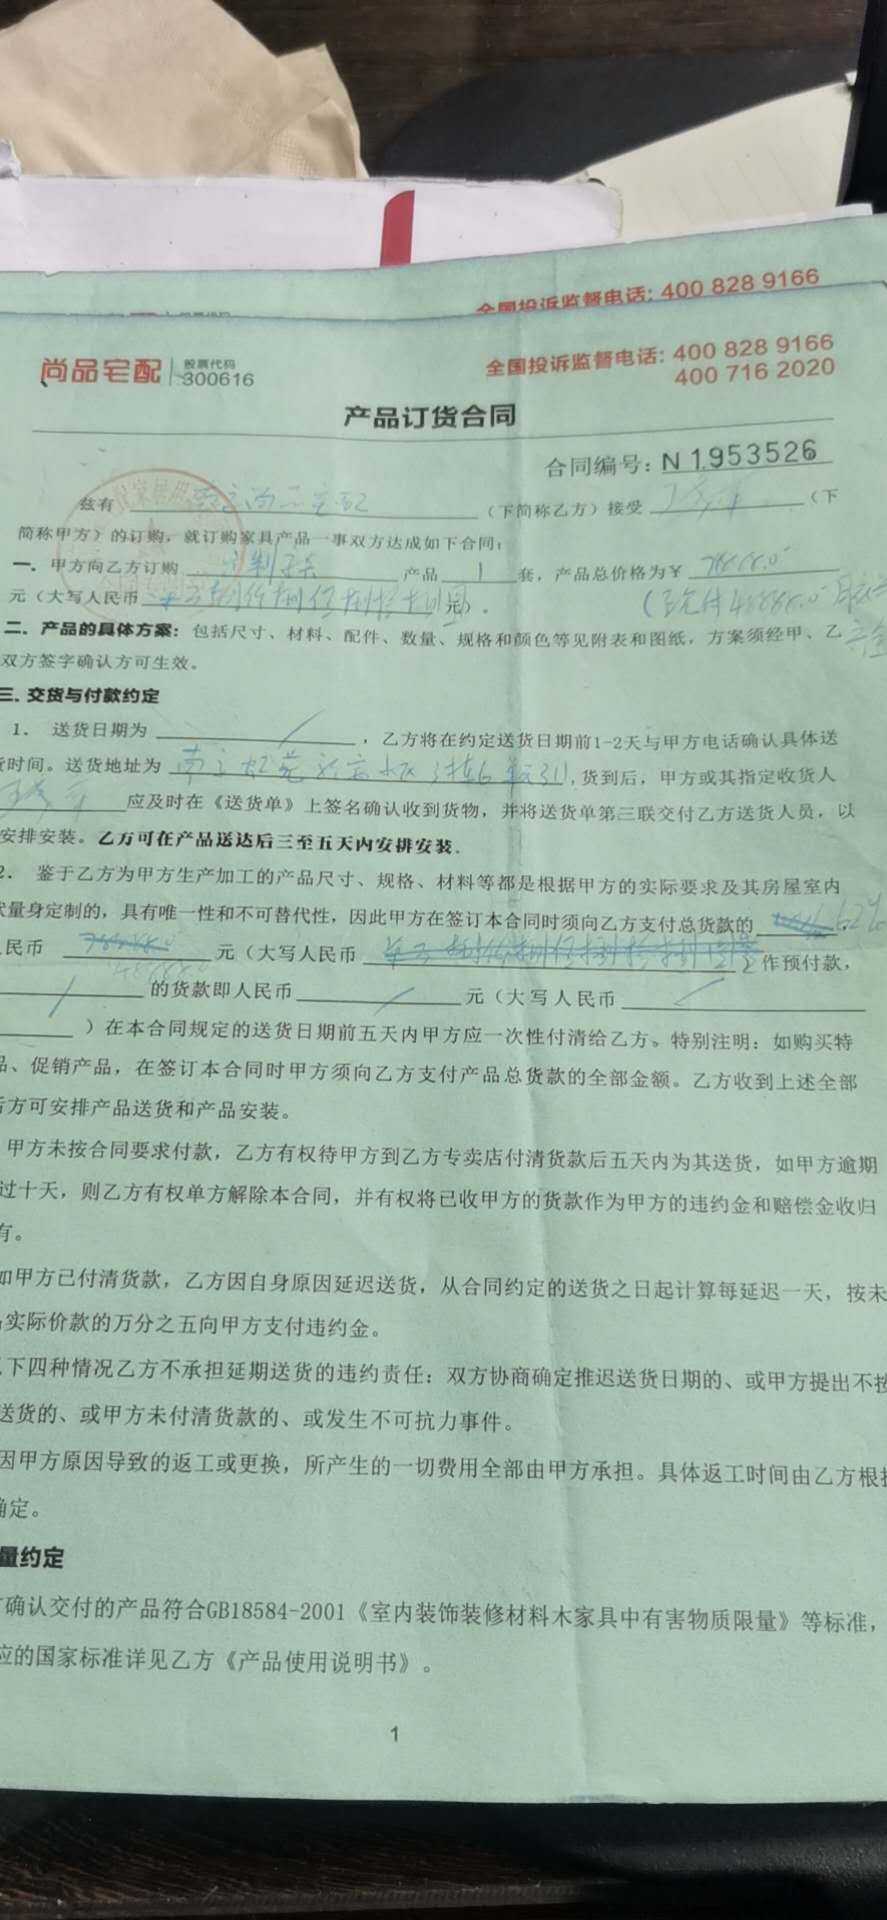 全国投诉监督电话: 400 828 9166
尚品宅配 股票代码 300616
全国投诉监督电话: 400 828 9166
400 716 2020
产品订货合同
合同编号: N 1953526
兹有 (下简称乙方)接受 (下
简称甲方)的订购,就订购家具产品一事双方达成如下合同:
一. 甲方向乙方订购 产品 1 套,产品总价格为¥
元(大写人民币 元)。
二. 产品的具体方案: 包括尺寸、材料、配件、数量、规格和颜色等见附表和图纸,方案须经甲、乙
双方签字确认方可生效。
三. 交货与付款约定
1. 送货日期为 ,乙方将在约定送货日期前1-2天与甲方电话确认具体送
货时间。送货地址为 ,货到后,甲方或其指定收货人
应及时在《送货单》上签名确认收到货物,并将送货单第三联交付乙方送货人员,以
安排安装。乙方可在产品送达后三至五天内安排安装.
2. 鉴于乙方为甲方生产加工的产品尺寸、规格、材料等都是根据甲方的实际要求及其房屋室内
量身定制的,具有唯一性和不可替代性,因此甲方在签订本合同时须向乙方支付总货款的 62%
民币 元(大写人民币 )作预付款,
的货款即人民币 元(大写人民币
)在本合同规定的送货日期前五天内甲方应一次性付清给乙方。特别注明:如购买特
品、促销产品,在签订本合同时甲方须向乙方支付产品总货款的全部金额。乙方收到上述全部
后方可安排产品送货和产品安装。
甲方未按合同要求付款,乙方有权待甲方到乙方专卖店付清货款后五天内为其送货,如甲方逾期
过十天,则乙方有权单方解除本合同,并有权将已收甲方的货款作为甲方的违约金和赔偿金收归
有。
如甲方已付清货款,乙方因自身原因延迟送货,从合同约定的送货之日起计算每延迟一天,按未
实际价款的万分之五向甲方支付违约金。
下四种情况乙方不承担延期送货的违约责任:双方协商确定推迟送货日期的、或甲方提出不按
送货的、或甲方未付清货款的、或发生不可抗力事件。
因甲方原因导致的返工或更换,所产生的一切费用全部由甲方承担。具体返工时间由乙方根据
确定。
量约定
确认交付的产品符合GB18584-2001《室内装饰装修材料木家具中有害物质限量》等标准,
应的国家标准详见乙方《产品使用说明书》。
1